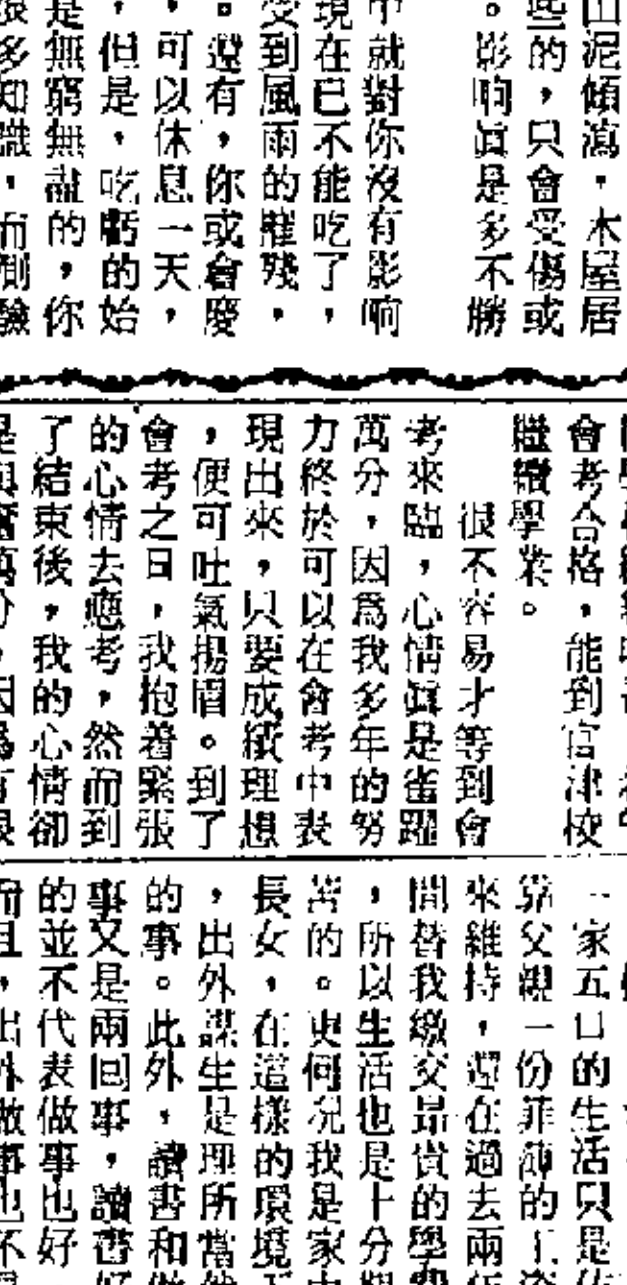 山泥傾瀉，木屋居
些的，只會受傷或
。影响眞是多不勝
中就對你沒有影响
現在已不能吃了，
受到風雨的摧殘，
。還有，你或會慶
，可以休息一天，
，但是，吃虧的始
是無窮無盡的，你
很多知識，而測驗
會考合格，能到官津校
繼續學業。
很不容易才等到會
考來臨，心情眞是雀躍
萬分，因爲我多年的努
力終於可以在會考中表
現出來，只要成績理想
，便可吐氣揚眉。到了
會考之日，我抱着緊張
的心情去應考，然而到
了結束後，我的心情卻
一家五口的生活只是
靠父親一份菲薄的工
來維持，還在過去兩
間替我繳交昂貴的學
，所以生活也是十分
苦的。更何況我是家
長女，在這樣的環境
，出外謀生，是理所當
的事。此外，讀書和做
事又是兩回事，讀書好
的並不代表做事也好
而且，出外做事也不